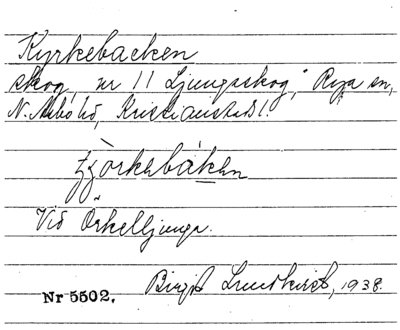 Kyrkebacken
skog, nr 11 Ljungaskog, Rya sn,
N. Åsbo hd, Kristianstads l.
Vid Örkelljunga.
Birgit Lundkvist, 1938.
Nr 5502.